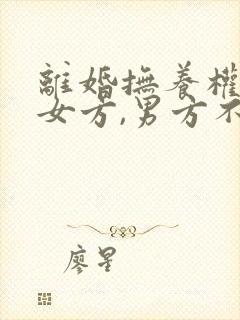 離婚撫養權
女方,男方不
廖星